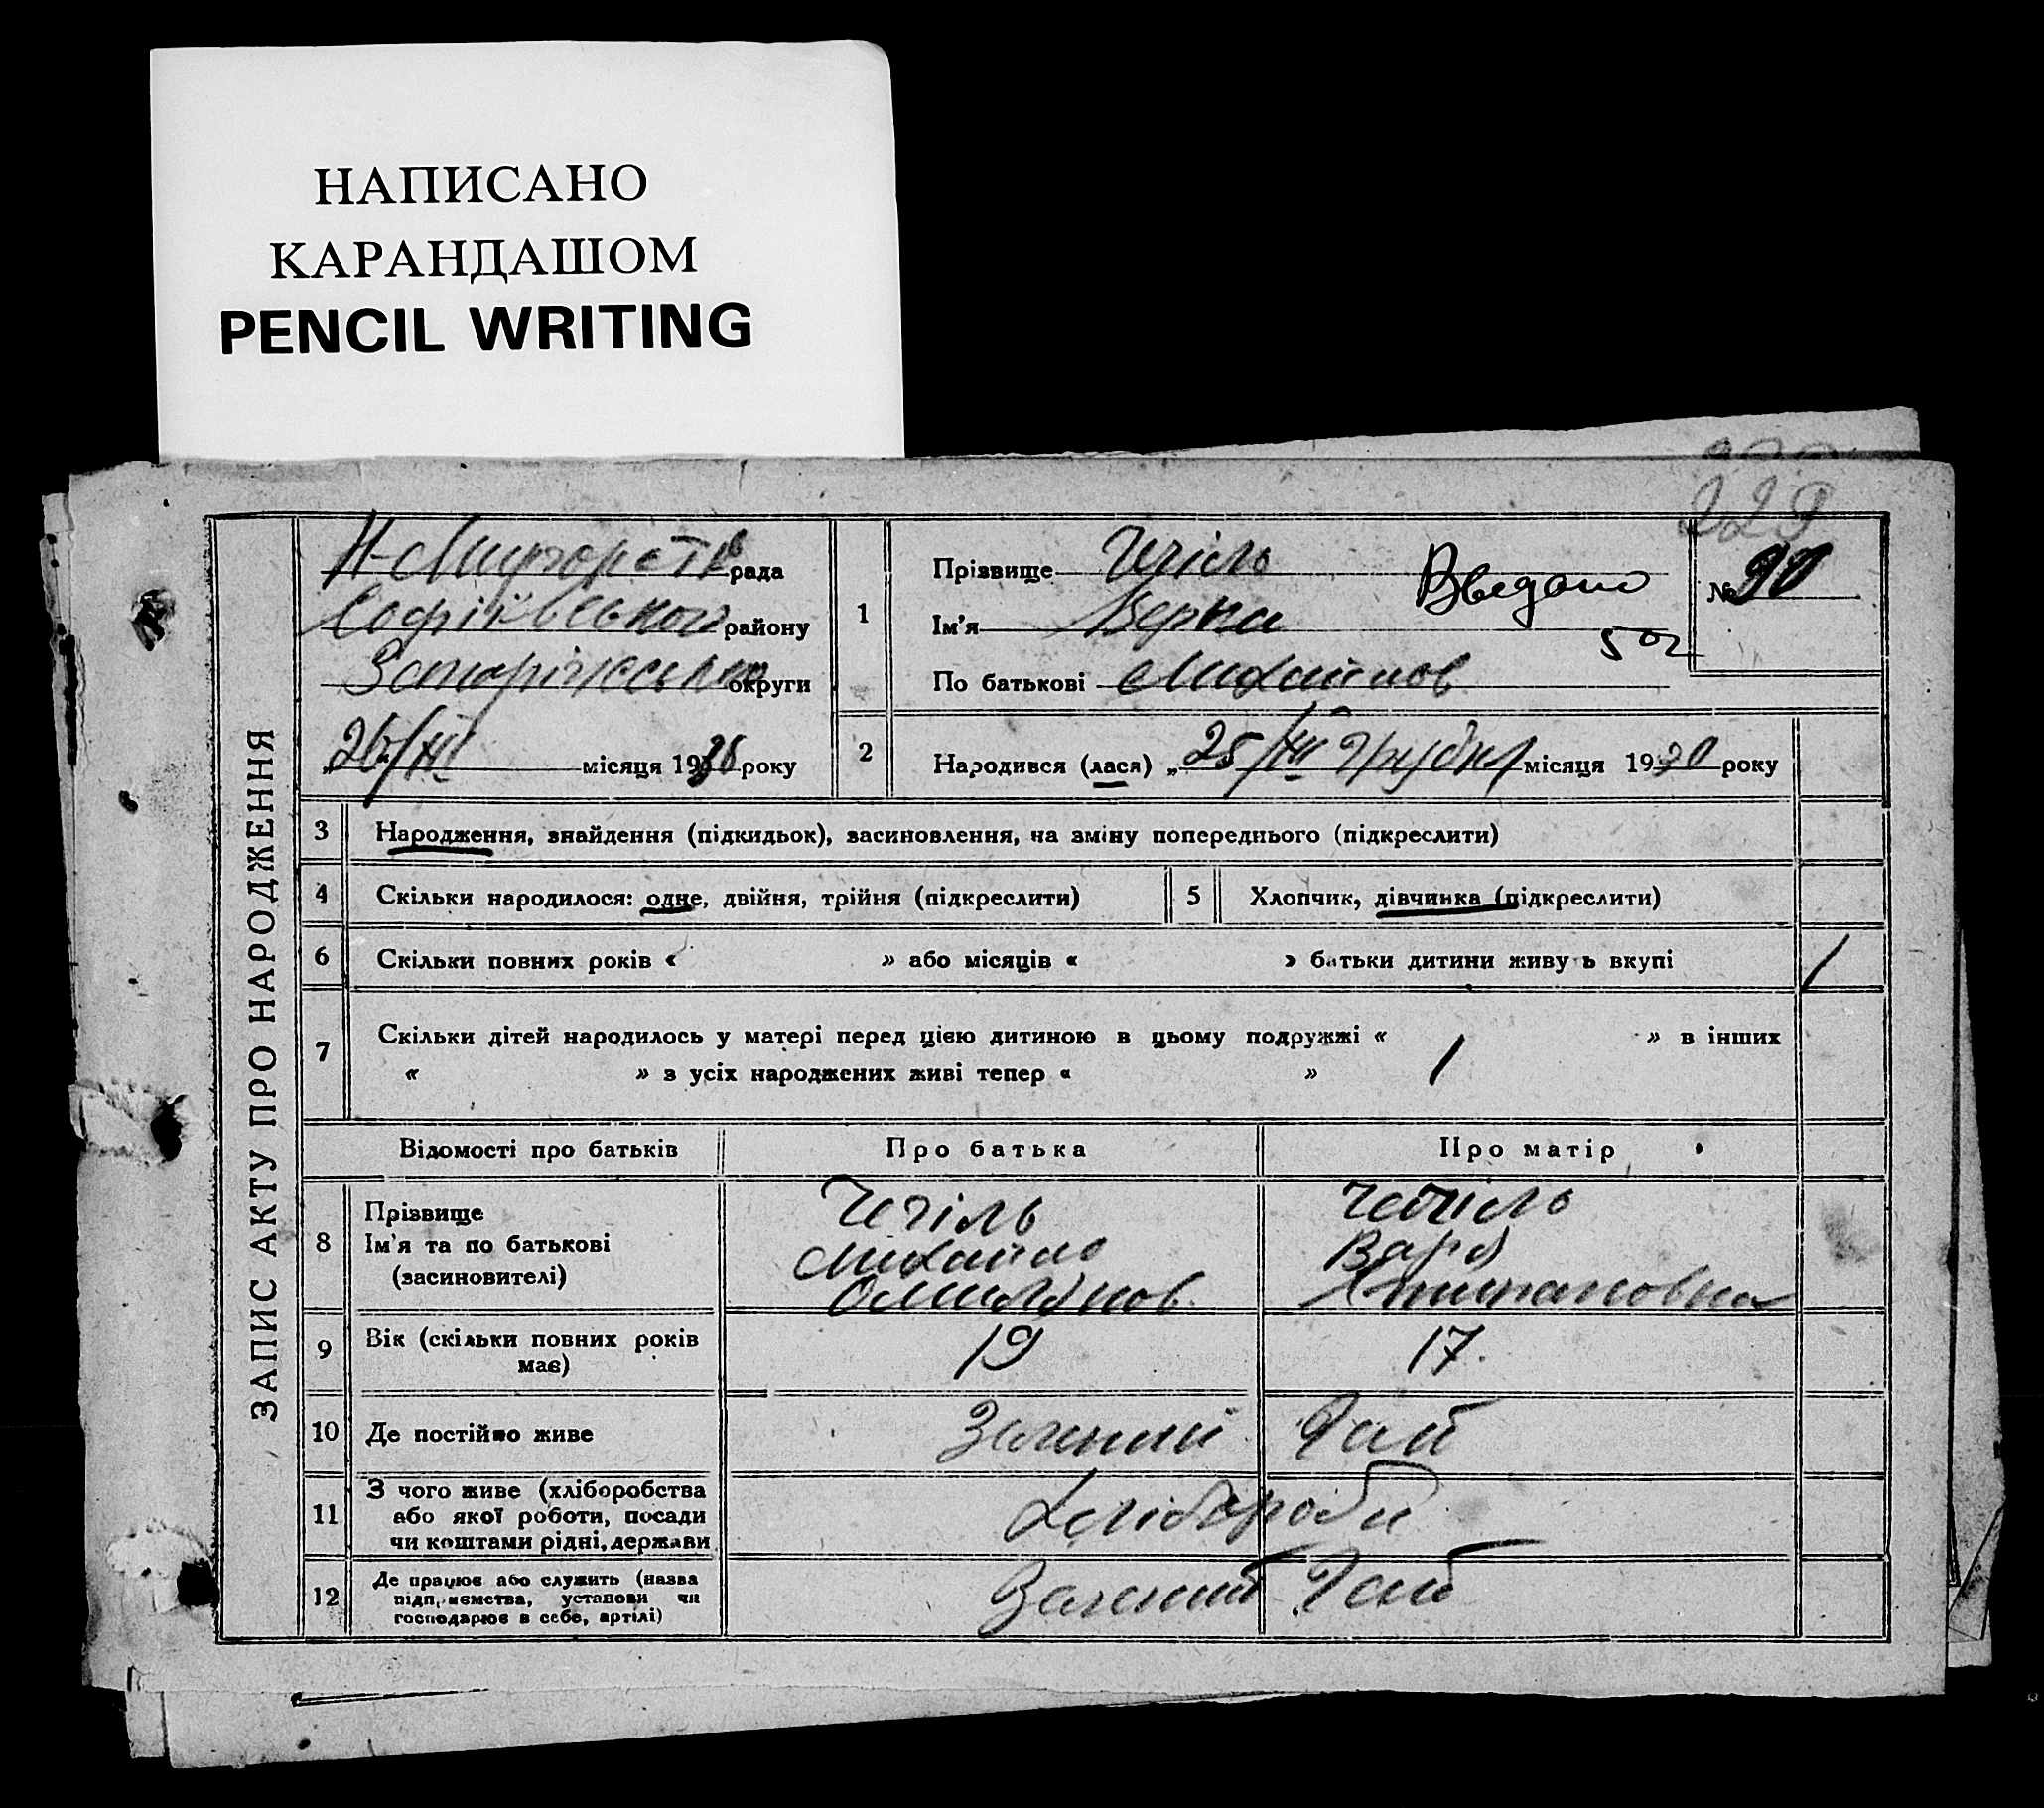 НАПИСАНО
КАРАНДАШОМ
PENCIL WRITING
229
ЗАПИС АКТУ ПРО НАРОДЖЕННЯ
рада
Софіївського району
округи
26/XII місяця 1930 року
1
Прізвище Чечіль
Введено
№ 90
Ім'я Верка
502
По батькові Михайлов
2 Народився (лася) „ 25/XII Грудня місяця 1930 року
3 Народження, знайдення (підкидьок), засиновлення, на зміну попереднього (підкреслити)
4 Скільки народилося: одне, двійня, трійня (підкреслити) 5 Хлопчик, дівчинка (підкреслити)
6 Скільки повних років « » або місяців « » батьки дитини живуть вкупі /
7 Скільки дітей народилось у матері перед цією дитиною в цьому подружжі « » в інших
« » з усіх народжених живі тепер « » /
Відомості про батьків Про батька Про матір
8 Прізвище Чечіль Чечіль
Ім'я та по батькові Михайло Варя
(засиновителі) Омилянов Степановна
9 Вік (скільки повних років має) 19 17.
10 Де постійно живе Зелений Гай
11 З чого живе (хліборобства
або якої роботи, посади
чи коштами рідні, держави
12 Де працює або служить (назва
підприємства, установи чи
господарює в себе, артілі) Зелений Гай